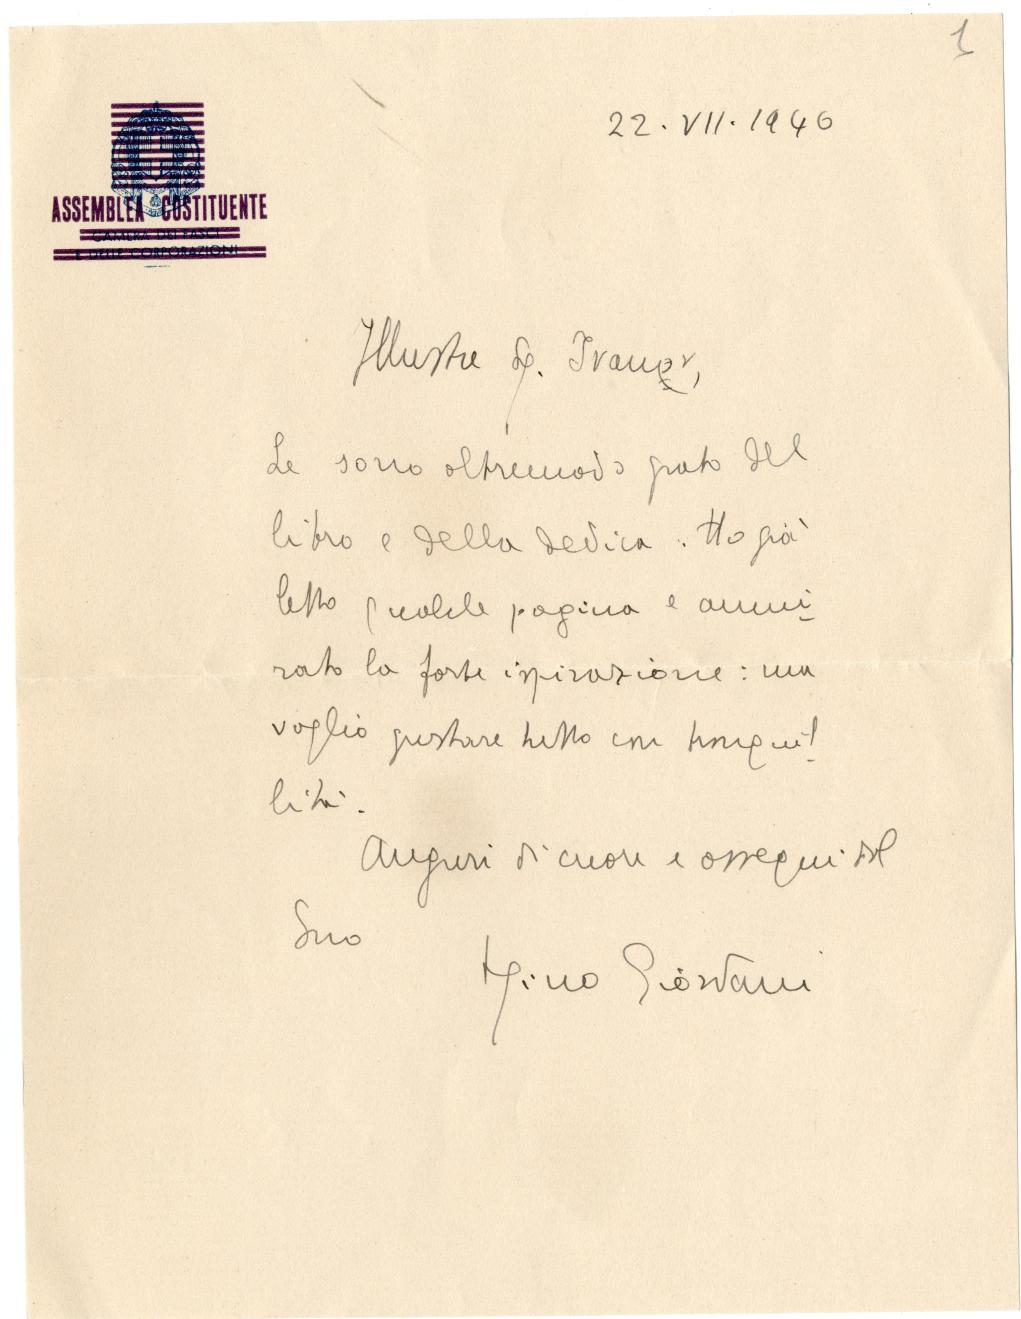 1
22.VII.1946
ASSEMBLEA COSTITUENTE
CAMERA DEI FASCI
E DELLE CORPORAZIONI
Illustre
Le sono oltremodo grato del
libro e della dedica. Ho già
letto qualche pagina e ammi
rato la forte ispirazione: ma
voglio gustare tutto con tranquil
lità.
Auguri di cuore e ossequi dal
Suo
Igino Giordani